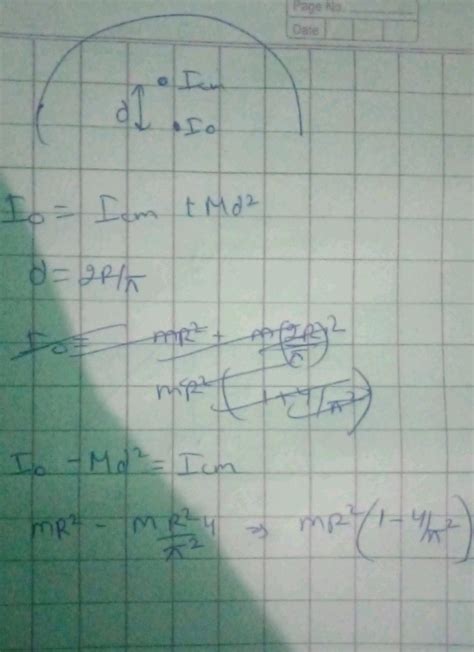 Page No.
Date
Icm
d
Io
Io = Icm + Md²
d = 2R/π
Io = mR² + m(2R/π)²
mR² (1 + 4/π²)
Io - Md² = Icm
mR² - m R²4/π² ⇒ mR² (1 - 4/π²)